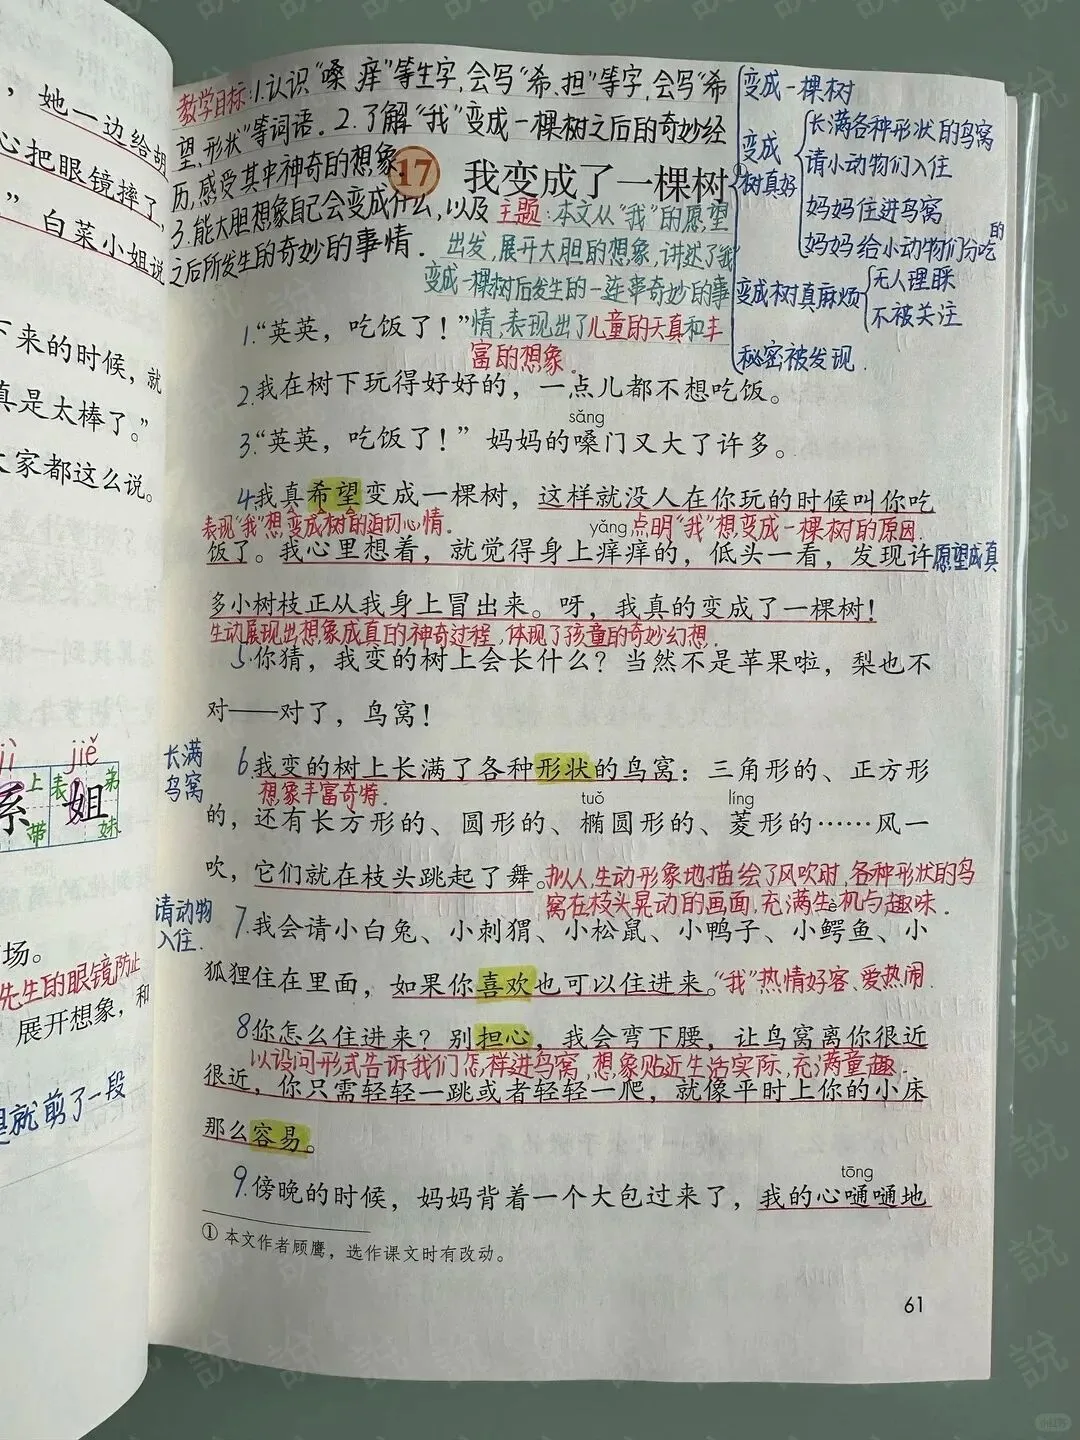 ，她一边给胡
心把眼镜摔了，
”白菜小姐说
下来的时候，就
真是太棒了。”
大家都这么说。
jì
jiě
系
上
带
表
姐
弟
妹
场。
先生的眼镜防止
展开想象，和
是就剪了一段
教学目标：1.认识“嗓、痒”等生字，会写“希、担”等字，会写“希
望、形状”等词语。2.了解“我”变成一棵树之后的奇妙经
历，感受其中神奇的想象。
3.能大胆想象自己会变成什么，以及
之后所发生的奇妙的事情．
17
我变成了一棵树①
主题：本文从“我”的愿望
出发，展开大胆的想象，讲述了我
变成一棵树后发生的一连串奇妙的事
情，表现出了儿童的天真和丰
富的想象．
变成一棵树
变成
树真好
长满各种形状的鸟窝
请小动物们入住
妈妈住进鸟窝
妈妈给小动物们分吃的
变成树真麻烦
无人理睬
不被关注
秘密被发现．
1.“英英，吃饭了！”
2.我在树下玩得好好的，一点儿都不想吃饭。
sǎng
3.“英英，吃饭了！”妈妈的嗓门又大了许多。
4.我真希望变成一棵树，这样就没人在你玩的时候叫你吃
表现“我”想变成树的迫切心情．
yǎng
点明“我”想变成一棵树的原因．
饭了。我心里想着，就觉得身上痒痒的，低头一看，发现许
愿望成真
多小树枝正从我身上冒出来。呀，我真的变成了一棵树！
生动展现出想象成真的神奇过程，体现了孩童的奇妙幻想．
5.你猜，我变的树上会长什么？当然不是苹果啦，梨也不
对——对了，鸟窝！
长满
鸟窝
6.我变的树上长满了各种形状的鸟窝：三角形的、正方形
想象丰富奇特．
tuǒ
líng
的，还有长方形的、圆形的、椭圆形的、菱形的……风一
吹，它们就在枝头跳起了舞。
拟人，生动形象地描绘了风吹时，各种形状的鸟
窝在枝头晃动的画面，充满生机与趣味．
请动物
入住．
è
7.我会请小白兔、小刺猬、小松鼠、小鸭子、小鳄鱼、小
狐狸住在里面，如果你喜欢也可以住进来。
“我”热情好客、爱热闹．
8.你怎么住进来？别担心，我会弯下腰，让鸟窝离你很近
以设问形式告诉我们怎样进鸟窝，想象贴近生活实际，充满童趣．
很近，你只需轻轻一跳或者轻轻一爬，就像平时上你的小床
那么容易。
tōng
9.傍晚的时候，妈妈背着一个大包过来了，我的心嗵嗵地
① 本文作者顾鹰，选作课文时有改动。
61
小红书